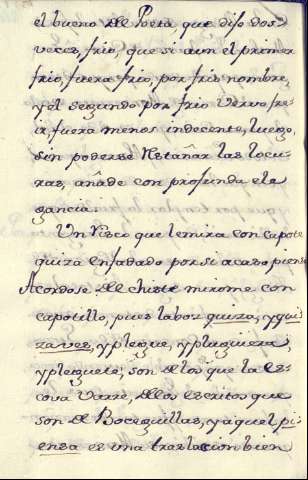 el bueno del Poeta, que dijo dos
veces, frio, que si aun el primer
frio, fuera frio, por frio nombre,
y el segundo por frio Vervo fre
ir, fuera menos indecente, luego,
sin poderse Restañar las locu-
ras, añade con profunda ele
gancia.
Un Visco que le mira con capote
quiza enfadado por si acaso piensa
Acordose del chiste mirome con
capotillo, pues labor quiza, y qui
za ves, y plegue, y pluguiera,
y pleguete, son de los que la es
cova varre, de los escritos que
son de Boceguillas, y aquel pi-
ensa es una traslacion bien